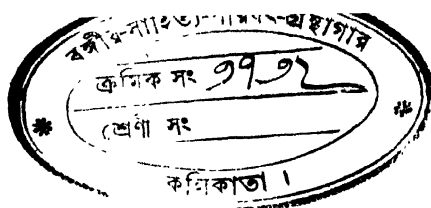 বঙ্গীয়-সাহিত্য-পরিষৎ-গ্রন্থাগার
ক্রমিক সং ১৭১২
শ্রেণী সং
* *
কলিকাতা ।